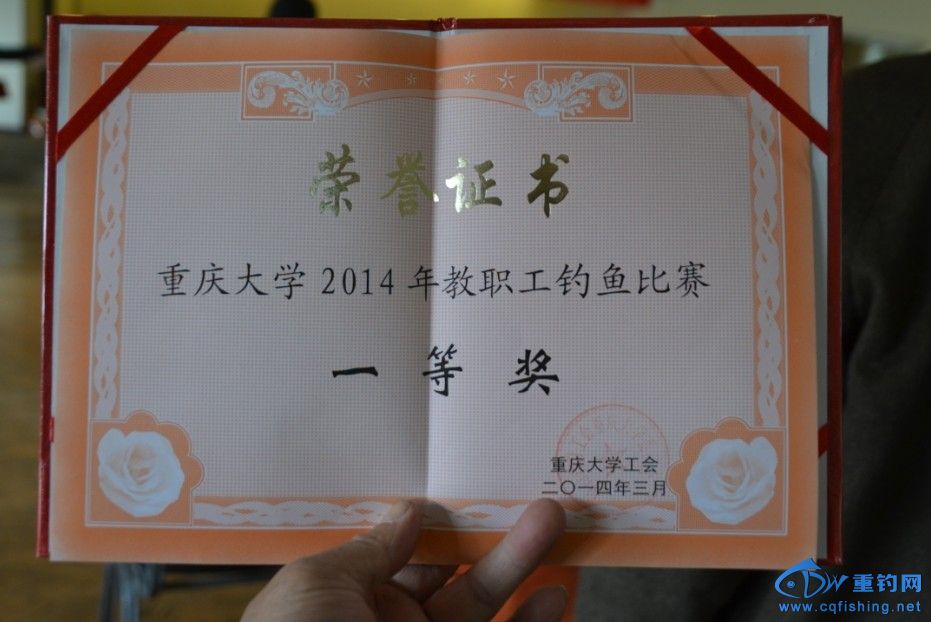 荣誉证书
重庆大学2014年教职工钓鱼比赛
一等奖
重庆大学工会
二〇一四年三月
重钓网
www.cqfishing.net